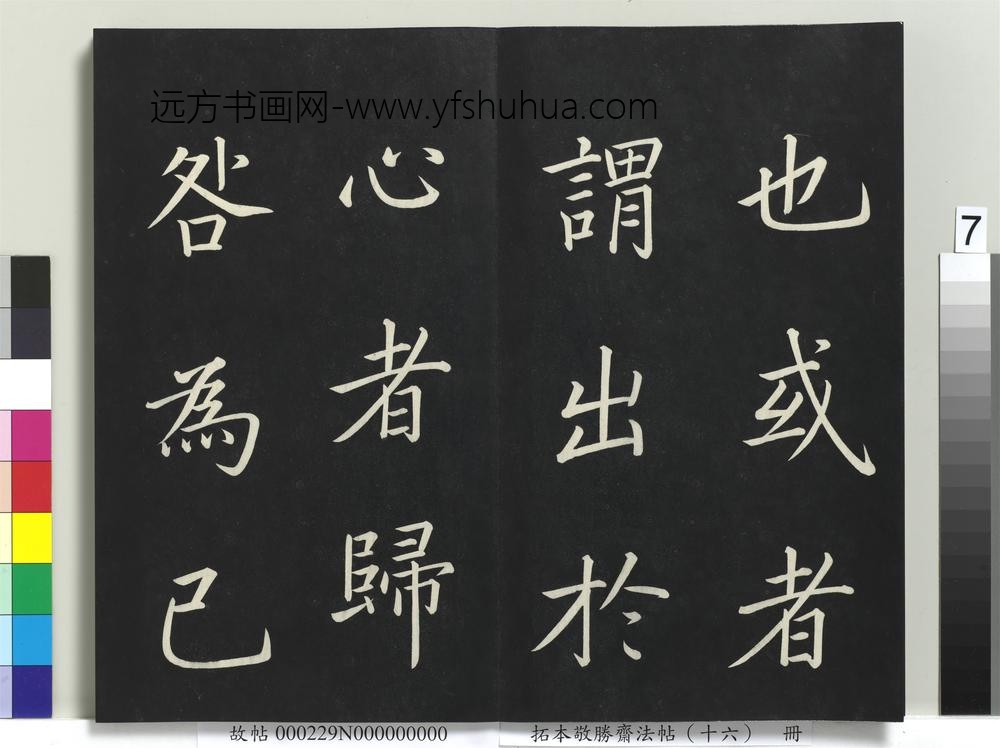 远方书画网-www.yfshuhua.com
也或者
謂出於
心者歸
咎為已
7
故帖 000229N000000000
拓本敬勝齋法帖（十六） 冊